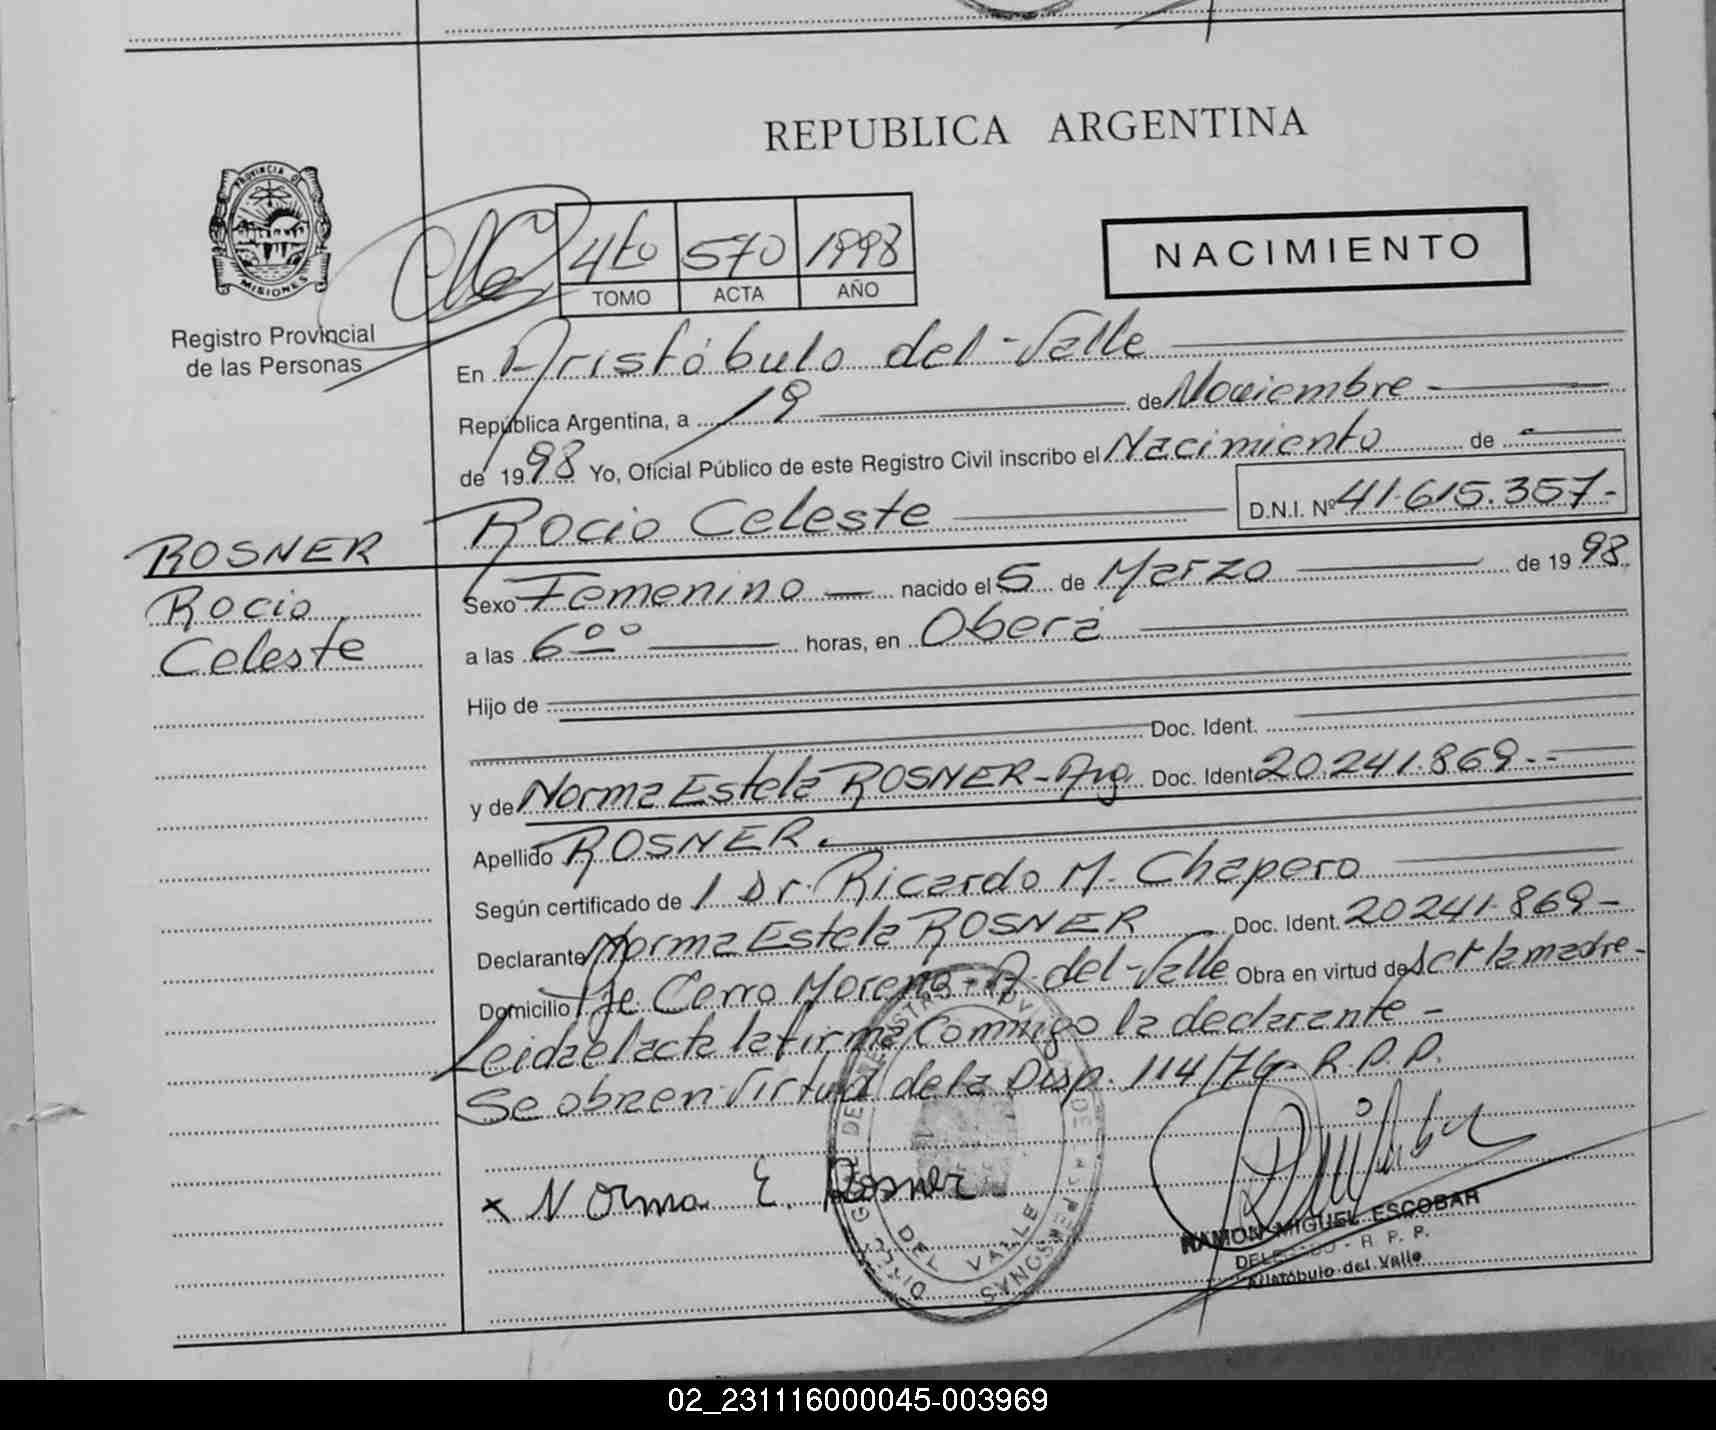 REPUBLICA ARGENTINA
PROVINCIA DE
MISIONES
Registro Provincial
de las Personas
4to 570 1998
TOMO ACTA AÑO
NACIMIENTO
En Aristóbulo del Valle
República Argentina, a 19 de Noviembre
de 1998 Yo, Oficial Público de este Registro Civil inscribo el Nacimiento de
Rocio Celeste D.N.I. Nº 41.615.357.-
ROSNER
Rocio
Celeste
Sexo Femenino nacido el 5 de Marzo de 1998
a las 6ºº horas, en Oberá
Hijo de
Doc. Ident.
y de Norma Estela ROSNER - Arg. Doc. Ident 20.241.869.-
Apellido ROSNER.
Según certificado de 1 Dr. Ricardo M. Chapero
Declarante Norma Estela ROSNER Doc. Ident. 20241.869-
Domicilio Pje Cerro Moreno - A. del Valle Obra en virtud de ser la madre-
Leida el acta la firma Conmigo la declarante -
Se obra en Virtud de la Disp. 114/76- R.P.P.
x Norma E. Rosner
DEL VALLE
PERSONAS
RAMON MIGUEL ESCOBAR
DELEGADO - R. P. P.
Aristóbulo del Valle
02_231116000045-003969